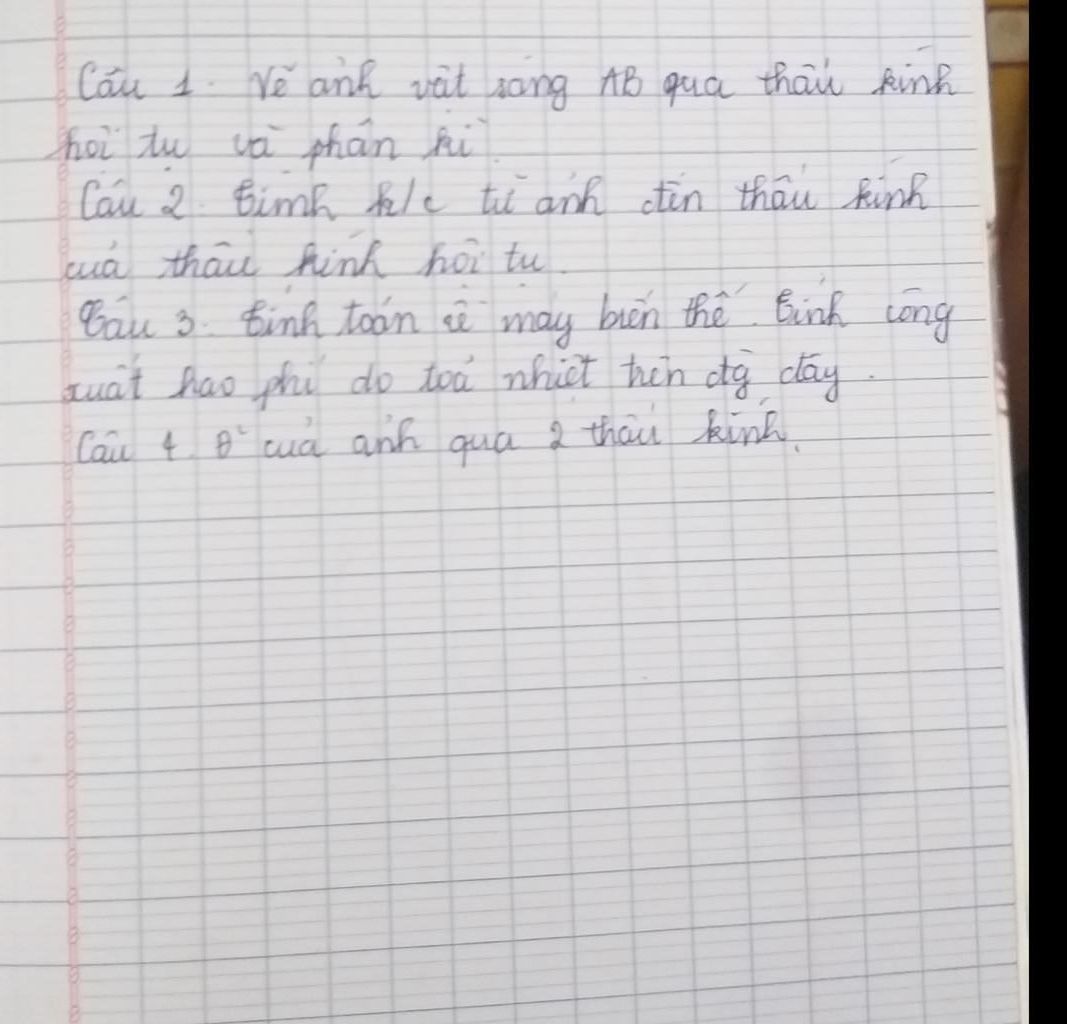 Câu 1. Vẽ ảnh vật sáng AB qua thấu kính
hội tụ và phân kì
Câu 2. Tính k/c từ ảnh đến thấu kính
của thấu kính hội tụ.
Câu 3. Tính toán về máy biến thế. Tính công
suất hao phí do toả nhiệt trên đg dây.
Câu 4. của ảnh qua 2 thấu kính.